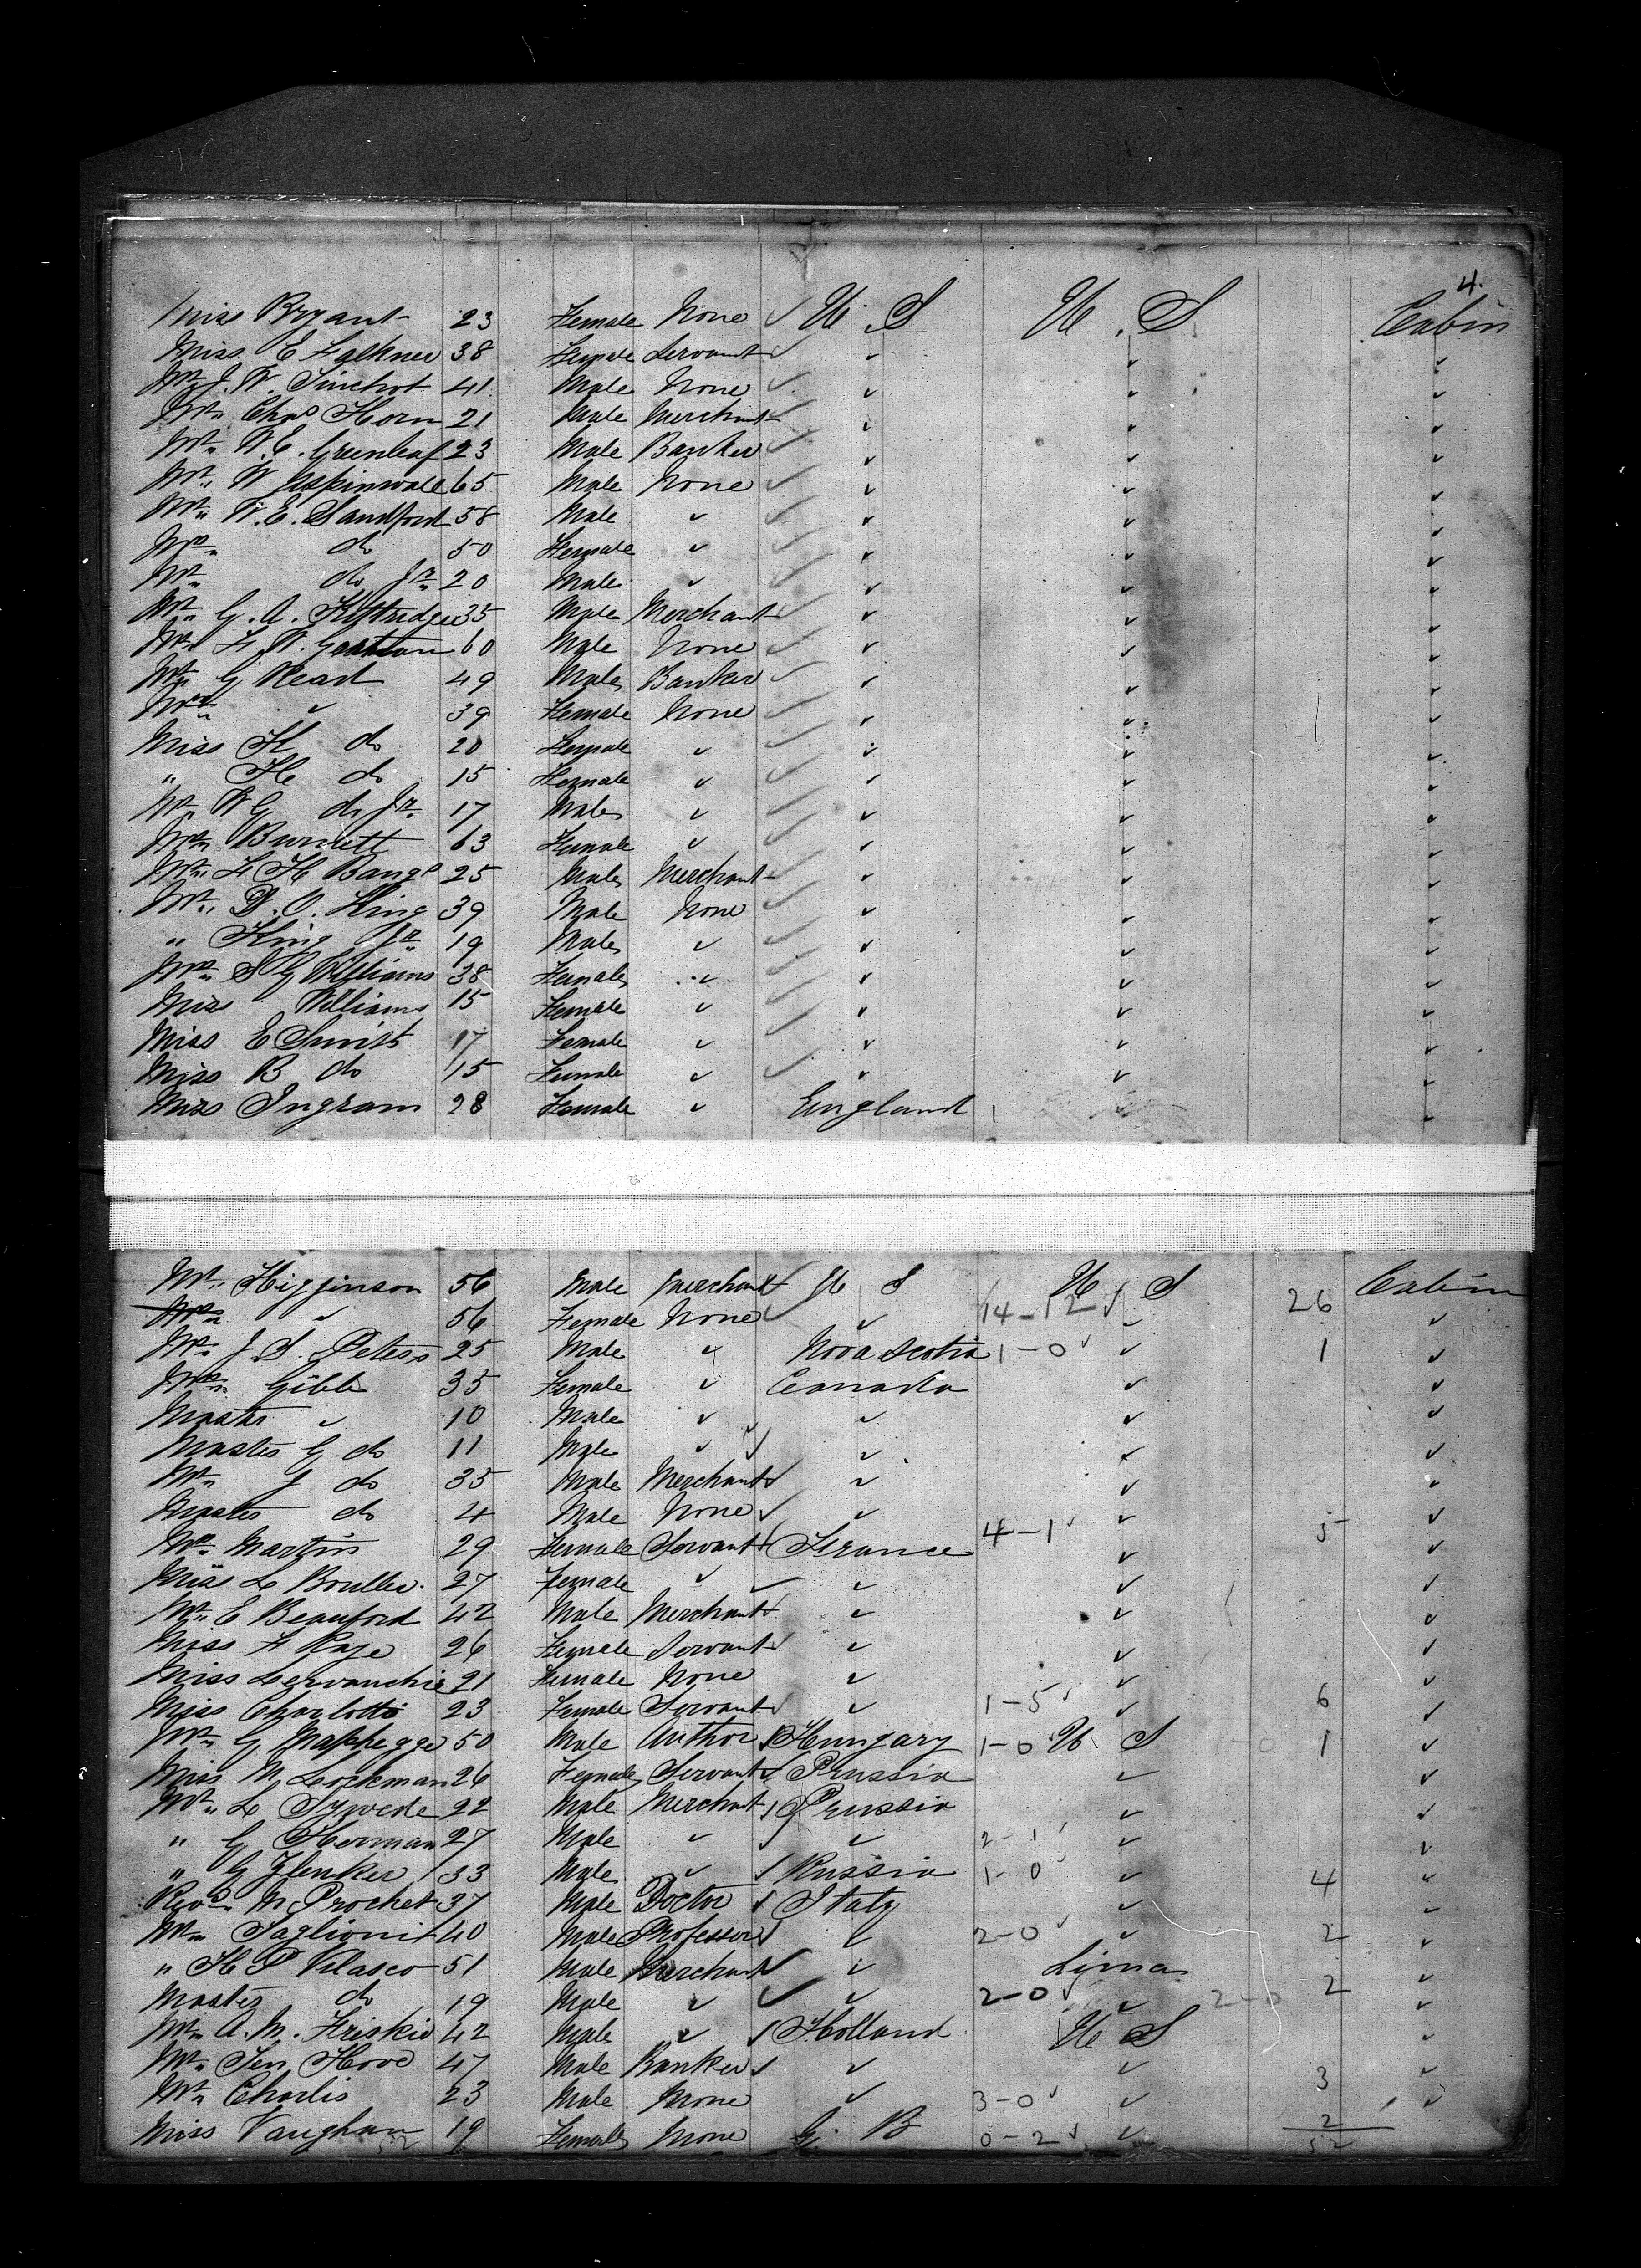 4.
Miss Bryant 23 Female None ✓ U. S U. S Cabin
Miss E Falkner 38 Female Servant ✓ ✓ ✓ ✓
Mr J. W. 41 Male None ✓ ✓ ✓ ✓
Mr Chas Horn 21 Male Merchant ✓ ✓ ✓ ✓
Mr W. E. Greenleaf 23 Male Banker ✓ ✓ ✓ ✓
Mr W Aspinwall 65 Male None ✓ ✓ ✓ ✓
Mr W. E. Sandford 58 Male ✓ ✓ ✓ ✓ ✓
Mrs do 50 Female ✓ ✓ ✓ ✓ ✓
Mr do Jr 20 Male ✓ ✓ ✓ ✓ ✓
Mr G. A. Kittridge 35 Male Merchant ✓ ✓ ✓ ✓
Mr F. W. 60 Male None ✓ ✓ ✓ ✓
Mr G Read 49 Male Banker ✓ ✓ ✓ ✓
Mrs ✓ 39 Female None ✓ ✓ ✓ ✓
Miss K do 20 Female ✓ ✓ ✓ ✓ ✓
" H do 15 Female ✓ ✓ ✓ ✓ ✓
Mr W G do Jr 17 Male ✓ ✓ ✓ ✓ ✓
Mrs Burnett 63 Female ✓ ✓ ✓ ✓ ✓
Mr F H Bangs 25 Male Merchant ✓ ✓ ✓ ✓
Mr D. O. King 39 Male None ✓ ✓ ✓ ✓
" King Jr 19 Male ✓ ✓ ✓ ✓ ✓
Mrs S G Williams 38 Female ✓ ✓ ✓ ✓ ✓
Miss Williams 15 Female ✓ ✓ ✓ ✓ ✓
Miss E Smith 17 Female ✓ ✓ ✓ ✓ ✓
Miss B do 15 Female ✓ ✓ ✓ ✓ ✓
Miss Ingram 28 Female ✓ England ✓ ✓
Mr Higginson 56 Male Merchant ✓ U S U S Cabin
Mrs ✓ 56 Female None ✓ ✓ 14-12 ✓ ✓ 26 ✓
Mr J. S. Peters 25 Male ✓ Nova Scotia 1-0 ✓ ✓ 1 ✓
Mrs Gibb 35 Female ✓ Canada ✓ ✓
Master ✓ 10 Male ✓ ✓ ✓ ✓
Master G do 11 Male ✓ ✓ ✓ ✓ ✓
Mr J do 35 Male Merchant ✓ ✓ ✓ ✓
Master do 4 Male None ✓ ✓ 4-1 ✓ 5 ✓
Mrs Martin 29 Female Servant ✓ France ✓ ✓
Miss L 27 Female ✓ ✓ ✓ ✓ ✓
Mr E Beauford 42 Male Merchant ✓ ✓ ✓ ✓
Miss F 26 Female Servant ✓ ✓ ✓ ✓
Miss 21 Female None ✓ ✓ ✓
Miss Charlotte 23 Female Servant ✓ ✓ 1-5 ✓ ✓ 6 ✓
Mr G 50 Male Author ✓ Hungary 1-0 U S 1 ✓
Miss M Lockman 26 Female Servant ✓ Prussia ✓ ✓
Mr L 22 Male Merchant ✓ Prussia ✓ ✓
" G Herman 27 Male ✓ ✓ 2-1 ✓ ✓
" G 33 Male ✓ ✓ Russia 1-0 ✓ 4 ✓
Revd M Prochet 37 Male Doctor ✓ Italy ✓ ✓
Mr Taglioni 40 Male Professor ✓ ✓ 2-0 ✓ ✓ 2 ✓
" H P Velasco 51 Male Merchant ✓ ✓ Lima ✓
Master do 19 Male ✓ ✓ ✓ 2-0 ✓ ✓ 2-0 2 ✓
Mr A. M. 42 Male ✓ ✓ Holland U S ✓
Mr Ten Hove 47 Male Banker ✓ ✓ ✓ ✓
Mr Charlis 23 Male None ✓ 3-0 ✓ ✓ 3 ✓
Miss Vaughan 19 Female None G. B 0-2 ✓ ✓ 2
52 52